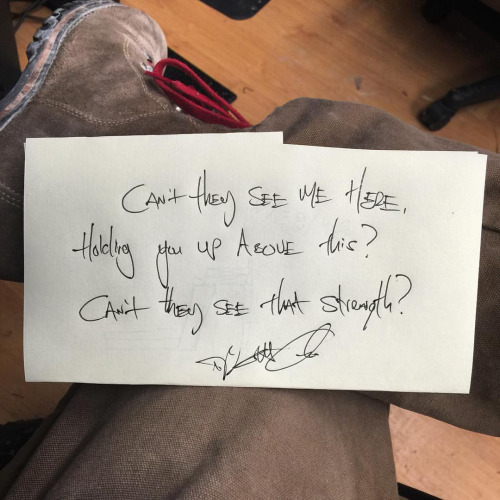 CAN'T they SEE ME HERE,
Holding you UP ABOVE this?
CAN'T they SEE that strength?